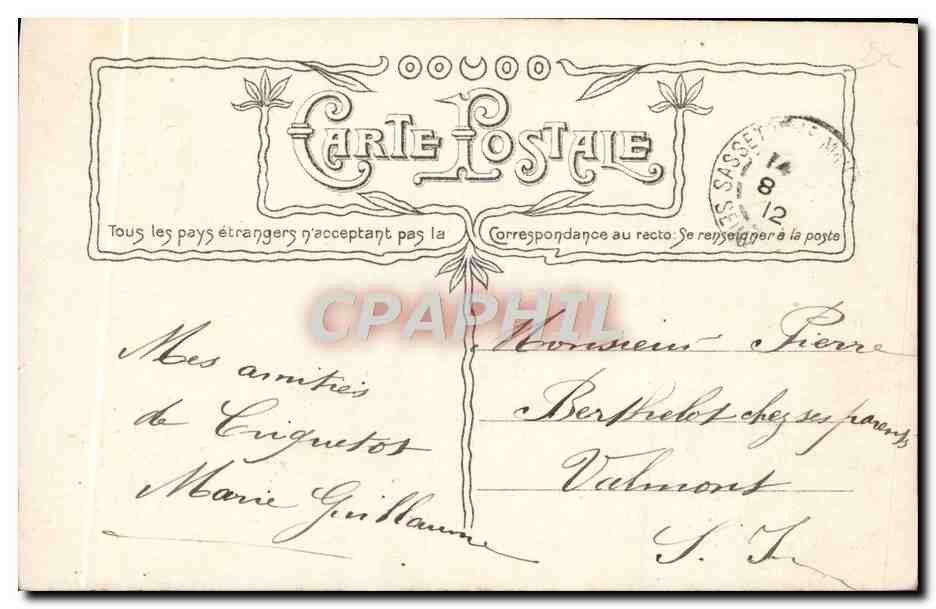 CARTE POSTALE
Tous les pays étrangers n'acceptant pas la Correspondance au recto: Se renseigner à la poste
SASSET
8
12
CPAPHIL
Mes amitiés
de Criquetot
Marie Guillaume
Monsieur Pierre
Berthelot chez ses parents
Valmont
S. I